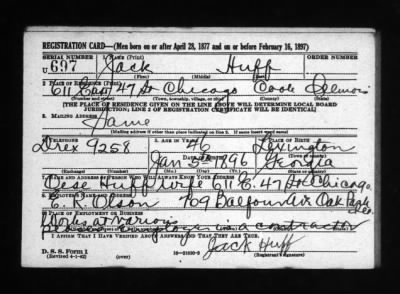 REGISTRATION CARD—(Men born on or after April 28, 1877 and on or before February 16, 1897)
SERIAL NUMBER 1. NAME (Print) ORDER NUMBER
U 697 Jack Huff
(First) (Middle) (Last)
611 East 47 St Chicago Cook Illinois
(Town, township, village, or city)
[THE PLACE OF RESIDENCE GIVEN ON THE LINE ABOVE WILL DETERMINE LOCAL BOARD
JURISDICTION; LINE 2 OF REGISTRATION CERTIFICATE WILL BE IDENTICAL]
3. MAILING ADDRESS
Same
[Mailing address if other than place indicated on line 2. If same insert word same]
4. TELEPHONE 5. AGE IN YEARS 6. PLACE OF BIRTH
Drex 9258 46 Lexington
Jan 5th 1896 Georgia
(Exchange) (Number) (Mo.) (Day) (Yr.) (State or country)
7. NAME AND ADDRESS OF PERSON WHO WILL ALWAYS KNOW YOUR ADDRESS
Huff wife 611 E. 47 St Chicago
8. EMPLOYER'S NAME AND ADDRESS
E. R. Olson 709 Balfour Oak Park
9. PLACE OF EMPLOYMENT OR BUSINESS
Works at various
employer is a contractor
I AFFIRM THAT I HAVE VERIFIED ABOVE ANSWERS AND THAT THEY ARE TRUE.
Jack Huff
D. S. S. Form 1
(Revised 4-1-42) (over) (Registrant's signature)